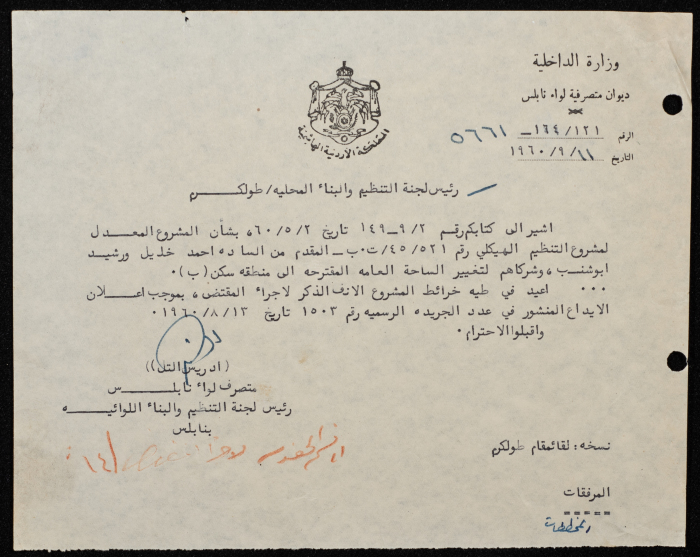 وزارة الداخلية
ديوان متصرفية لواء نابلس
المملكة الاردنية الهاشمية
الرقم ١٦٤/١٢١ — ٥٦٦١
التاريخ ١١/٩/١٩٦٠
رئيس لجنة التنظيم والبناء المحليه/ طولكرم
اشير الى كتابكم رقم ٩/٢—١٤٩ تاريخ ٦٠/٥/٢، بشأن المشروع المعدل
لمشروع التنظيم الهيكلي رقم ٤٥/٥٢١/ت٠ب— المقدم من الساده احمد خليل ورشيد
ابوشنب، وشركاهم لتغيير الساحة العامه المقترحه الى منطقه سكن (ب)٠
٠٠٠ اعيد في طيه خرائط المشروع الانف الذكر لاجراء المقتضى، بموجب اعلان
الايداع المنشور في عدد الجريده الرسميه رقم ١٥٠٣ تاريخ ١٩٦٠/٨/١٣٠
واقبلوا الاحترام٠
(ادريس التل))
متصرف لواء نابلس
رئيس لجنة التنظيم والبناء اللوائيه
بنابلس
نسخه: لقائمقام طولكرم
المرفقات
المخططات